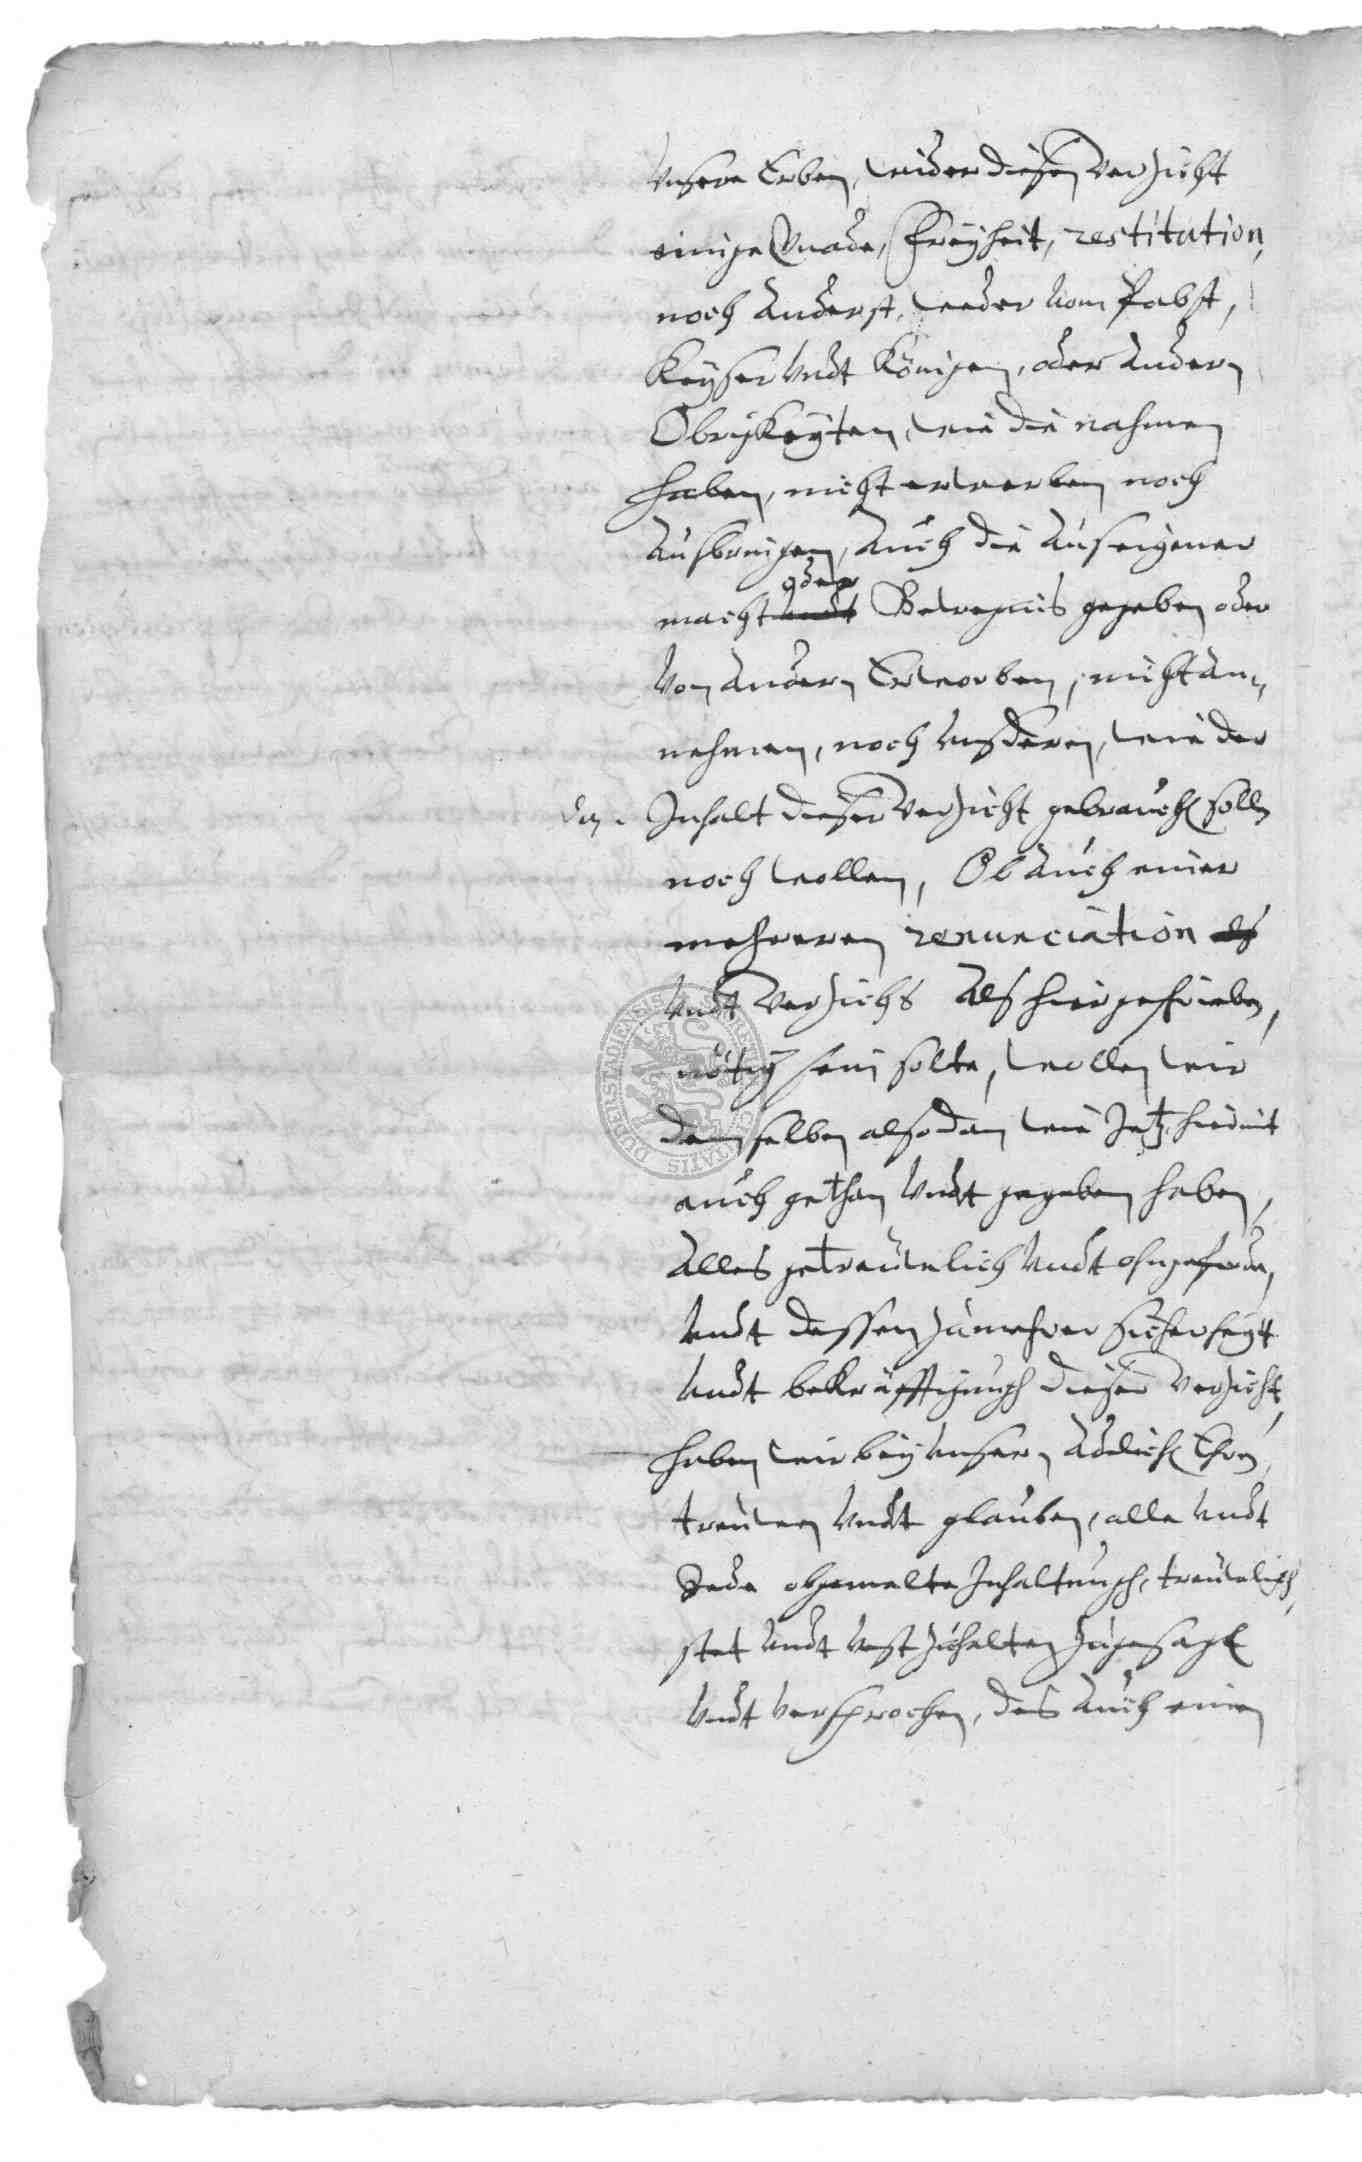 Unsere Erben, wider diesen Verzicht
einige Gnade, Freyheit, restitution,
noch Anderst, weder vom Pabst,
Keyser Undt Königen, oder Andern
Obrigkeyten, wie die nahmen
haben, nicht erwerben noch
Ausbringen, Auch die Aus eigener
oder
macht undt Bewegnis gegeben oder
Von Andern Erworben, nicht An-
nehmen, noch Uns deren, wie der
Inhalt dieser Verzicht gebrauchen sollen
noch wollen, Ob Auch einer
mehreren renunciation als
Undt Verzichs Als hier geschrieben,
nötig sein solte, wollen wir
denselben alsodan wie Jetz hiemit
auch gethan Undt gegeben haben,
Alles getreuwelich Undt ohngeferde,
Undt dessen zu mehrer sicherheytt
Undt bekräfftigungh dieser Verzicht,
haben wir bey Unsern Adelichen Ehren,
treuwen Undt glauben, alle Undt
Jede obgemelte Inhaltungh, treuwelich,
stet Undt Vest zuhalten zugesaget
Undt Versprochen, des Auch einen
DUDERSTADIENSIS